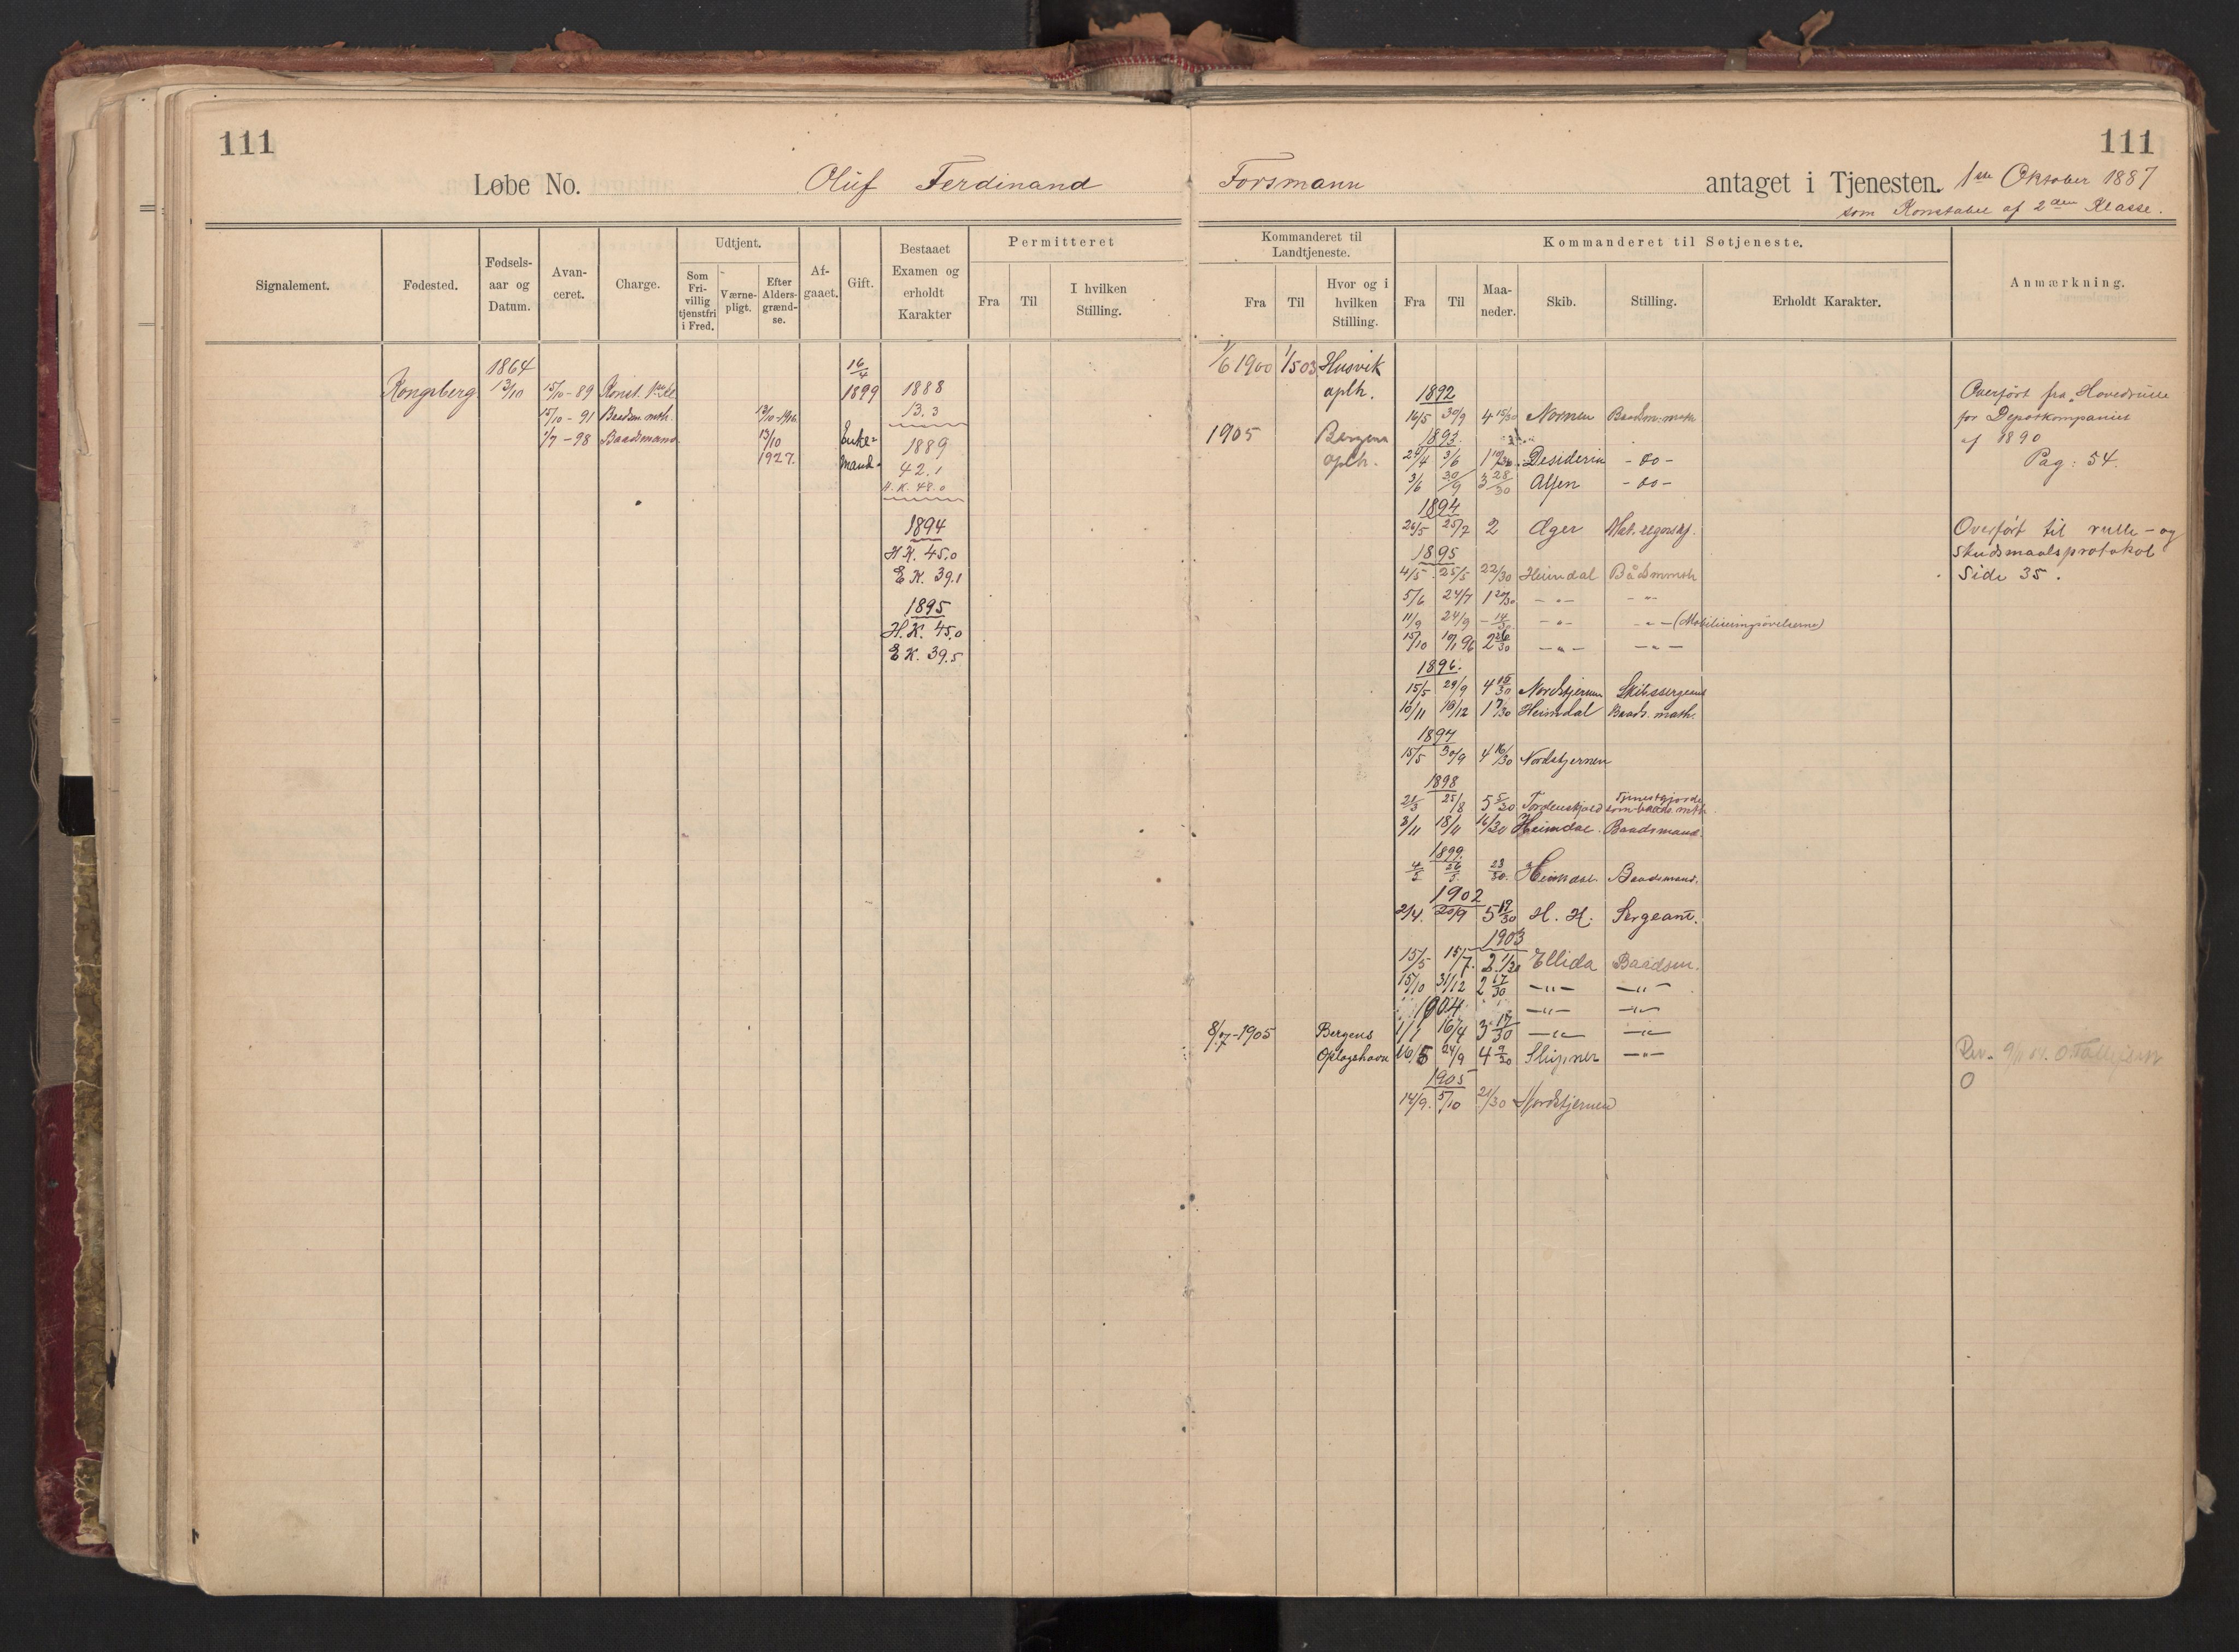 111
111
Løbe No. Oluf Ferdinand Forsmann antaget i Tjenesten. 1ste Oktober 1887
som Konstabel af 2den Klasse.
Signalement.
Fødested.
Fødsels-
aar og
Datum.
Avan-
ceret.
Charge.
Udtjent.
Som
Fri-
villig
tjenstfri
i Fred.
Værne-
pligt.
Efter
Alders-
grænd-
se.
Af-
gaaet.
Gift.
Bestaaet
Examen og
erholdt
Karakter
Permitteret
Fra
Til
I hvilken
Stilling.
Kommanderet til
Landtjeneste.
Fra
Til
Hvor og i
hvilken
Stilling.
Kommanderet til Søtjeneste.
Fra
Til
Maa-
neder.
Skib.
Stilling.
Erholdt Karakter.
Anmærkning.
Kongsberg
1864
13/10
15/10-89 Konst. 1ste Kl
15/10-91 Baadsm. mth.
1/7-98 Baadsmand
13/10-1916
13/10
1927.
16/4
1899
Enke-
mand.
1888
13.3
1889
42.1
H.K. 48.0
1894
H.K. 45.0
E K. 39.1
1895
H.K. 45.0
E K. 39.5
1/6 1900 1/5 03 Husvik
oplh.
1905 Bergens
oplh.
8/7-1905 Bergens
Oplagshavn
1892
16/5 30/9 4 15/30 Nornen Baadsm. math
1893.
24/4 3/6 1 10/30 Desideria - do -
3/6 30/9 3 28/30 Alfen - do -
1894
26/5 25/7 2 Æger
1895
4/5 25/5 22/30 Heimdal Bådsmmth
5/6 24/7 1 20/30 - " - - " -
11/9 24/9 - 14/30 - " - - " - (Mobiliseringsøvelserne)
15/10 10/1 96 2 26/30 - " - - " -
1896.
15/5 29/9 4 15/30 Nordstjernen Skibssergeant
10/11 16/12 1 7/30 Heimdal Baads. math.
1897
15/5 30/9 4 16/30 Nordstjernen
1898
21/3 25/8 5 5/30 Tordenskjold Tjenestgjorde
som baads. mth
3/11 18/11 16/30 Heimdal. Baadsmand.
1899.
4/5 26/5. 23/30. Heimdal. Baadsmand.
1902
2/4. 20/9 5 19/30 H. H. Sergeant.
1903
15/5 15/7. 2 1/30 Ellida Baadsm.
15/10 31/12 2 17/30 - " - - " -
1904 - " - - " -
1/1 16/4 3 17/30 - " - - " -
16/5 24/9 4 9/30 Sleipner - " -
1905
14/9. 5/10 21/30 Nordstjernen
Overført fra Hovedrulle
for Depotkompaniet
af 1890
Pag: 54.
Overført til rulle- og
skudsmaalsprotokol
Side 35.